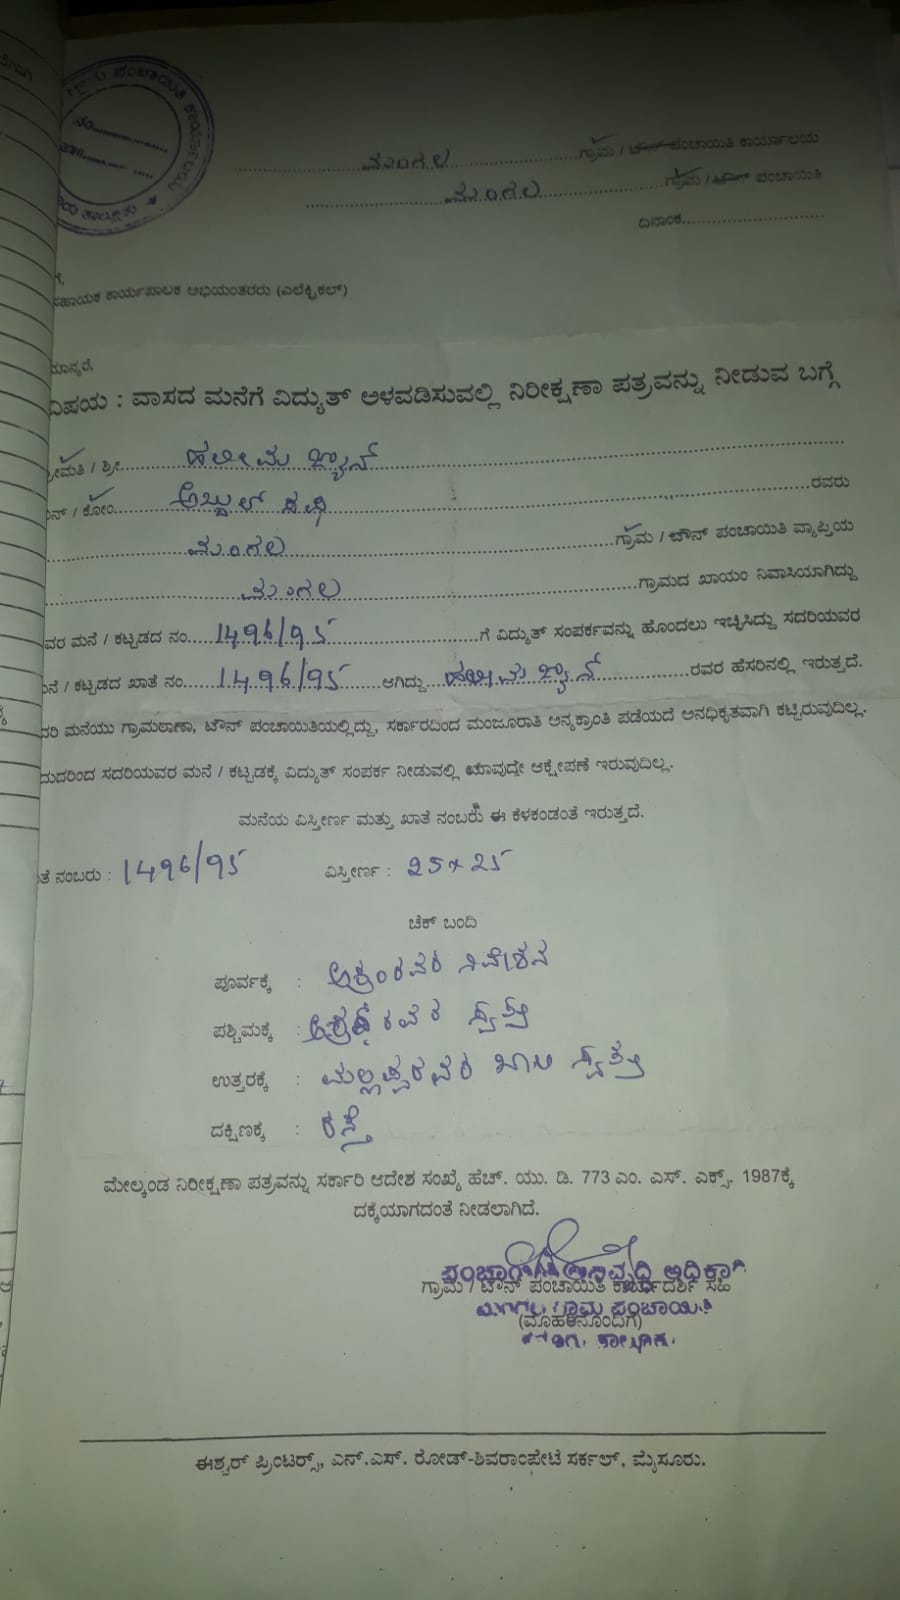 ಗ್ರಾಮ ಪಂಚಾಯಿತಿ ಕಾರ್ಯಾಲಯ
ನಂ
ಮಂಗಲ ಗ್ರಾಮ / ಟೌನ್ ಪಂಚಾಯಿತಿ ಕಾರ್ಯಾಲಯ
ಮಂಗಲ ಗ್ರಾಮ / ಟೌನ್ ಪಂಚಾಯಿತಿ
ದಿನಾಂಕ
ಗೆ,
ಸಹಾಯಕ ಕಾರ್ಯಪಾಲಕ ಅಭಿಯಂತರರು (ಎಲೆಕ್ಟ್ರಿಕಲ್)
ಮಾನ್ಯರೆ,
ವಿಷಯ : ವಾಸದ ಮನೆಗೆ ವಿದ್ಯುತ್ ಅಳವಡಿಸುವಲ್ಲಿ ನಿರೀಕ್ಷಣಾ ಪತ್ರವನ್ನು ನೀಡುವ ಬಗ್ಗೆ
ಶ್ರೀಮತಿ / ಶ್ರೀ ಹಲೀಮ
ಬಿನ್ / ಕೋಂ ಅಬ್ದುಲ್ ರವರು
ಮಂಗಲ ಗ್ರಾಮ / ಟೌನ್ ಪಂಚಾಯಿತಿ ವ್ಯಾಪ್ತಿಯ
ಮಂಗಲ ಗ್ರಾಮದ ಖಾಯಂ ನಿವಾಸಿಯಾಗಿದ್ದು
ವರ ಮನೆ / ಕಟ್ಟಡದ ನಂ. 1496/95 ಗೆ ವಿದ್ಯುತ್ ಸಂಪರ್ಕವನ್ನು ಹೊಂದಲು ಇಚ್ಚಿಸಿದ್ದು ಸದರಿಯವರ
ಮನೆ / ಕಟ್ಟಡದ ಖಾತೆ ನಂ. 1496/95 ಆಗಿದ್ದು ಹಲೀಮ ರವರ ಹೆಸರಿನಲ್ಲಿ ಇರುತ್ತದೆ.
ದರಿ ಮನೆಯು ಗ್ರಾಮಠಾಣಾ, ಟೌನ್ ಪಂಚಾಯಿತಿಯಲ್ಲಿದ್ದು, ಸರ್ಕಾರದಿಂದ ಮಂಜೂರಾತಿ ಅನ್ಯಕ್ರಾಂತಿ ಪಡೆಯದೆ ಅನಧಿಕೃತವಾಗಿ ಕಟ್ಟಿರುವುದಿಲ್ಲ.
ದುದರಿಂದ ಸದರಿಯವರ ಮನೆ / ಕಟ್ಟಡಕ್ಕೆ ವಿದ್ಯುತ್ ಸಂಪರ್ಕ ನೀಡುವಲ್ಲಿ ಯಾವುದೇ ಆಕ್ಷೇಪಣೆ ಇರುವುದಿಲ್ಲ.
ಮನೆಯ ವಿಸ್ತೀರ್ಣ ಮತ್ತು ಖಾತೆ ನಂಬರು ಈ ಕೆಳಕಂಡಂತೆ ಇರುತ್ತದೆ.
ತೆ ನಂಬರು : 1496/95 ವಿಸ್ತೀರ್ಣ : 25 x 25
ಚೆಕ್ ಬಂದಿ
ಪೂರ್ವಕ್ಕೆ : ಅಕ್ರಂರವರ ನಿವೇಶನ
ಪಶ್ಚಿಮಕ್ಕೆ : ರವರ ಸ್ವತ್ತು
ಉತ್ತರಕ್ಕೆ : ಮಲ್ಲಪ್ಪರವರ ಖಾಲಿ ಸ್ವತ್ತು
ದಕ್ಷಿಣಕ್ಕೆ : ರಸ್ತೆ
ಮೇಲ್ಕಂಡ ನಿರೀಕ್ಷಣಾ ಪತ್ರವನ್ನು ಸರ್ಕಾರಿ ಆದೇಶ ಸಂಖ್ಯೆ ಹೆಚ್. ಯು. ಡಿ. 773 ಎಂ. ಎಸ್. ಎಕ್ಸ್. 1987ಕ್ಕೆ
ದಕ್ಕೆಯಾಗದಂತೆ ನೀಡಲಾಗಿದೆ.
ಪಂಚಾಯಿತಿ ಅಭಿವೃದ್ಧಿ ಅಧಿಕಾರಿ
ಗ್ರಾಮ / ಟೌನ್ ಪಂಚಾಯಿತಿ ಕಾರ್ಯದರ್ಶಿ ಸಹಿ
ಮಂಗಲ ಗ್ರಾಮ ಪಂಚಾಯಿತಿ
(ಮೊಹರಿನೊಂದಿಗೆ)
ಈಶ್ವರ್ ಪ್ರಿಂಟರ್ಸ್, ಎನ್.ಎಸ್. ರೋಡ್-ಶಿವರಾಂಪೇಟೆ ಸರ್ಕಲ್, ಮೈಸೂರು.